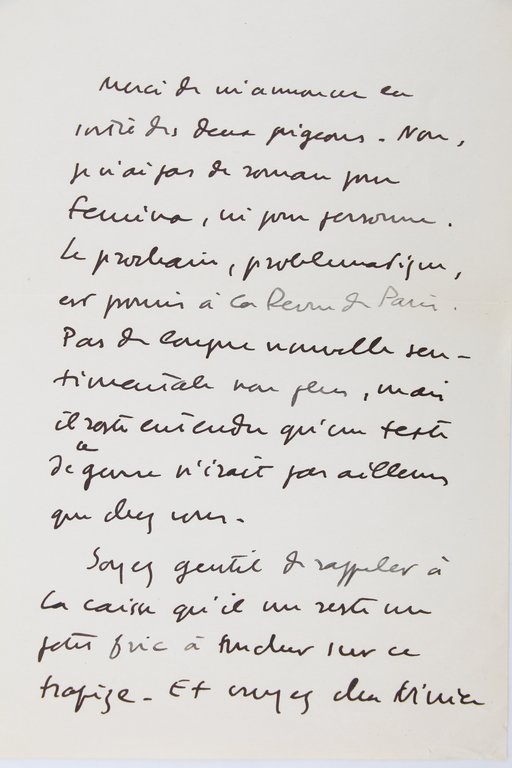 Merci de m'annoncer la
sortie des deux pigeons. Non,
je n'ai pas de roman pour
Femina, ni pour personne.
Le prochain, problématique,
est promis à la Revue de Paris.
Pas de longue nouvelle sen-
timentale non plus, mais
il reste entendu qu'un texte
de ce genre n'irait pas ailleurs
que chez vous.
Soyez gentil de rappeler à
la caisse qu'il me reste un
petit fric à toucher sur ce
trapèze. Et croyez cher